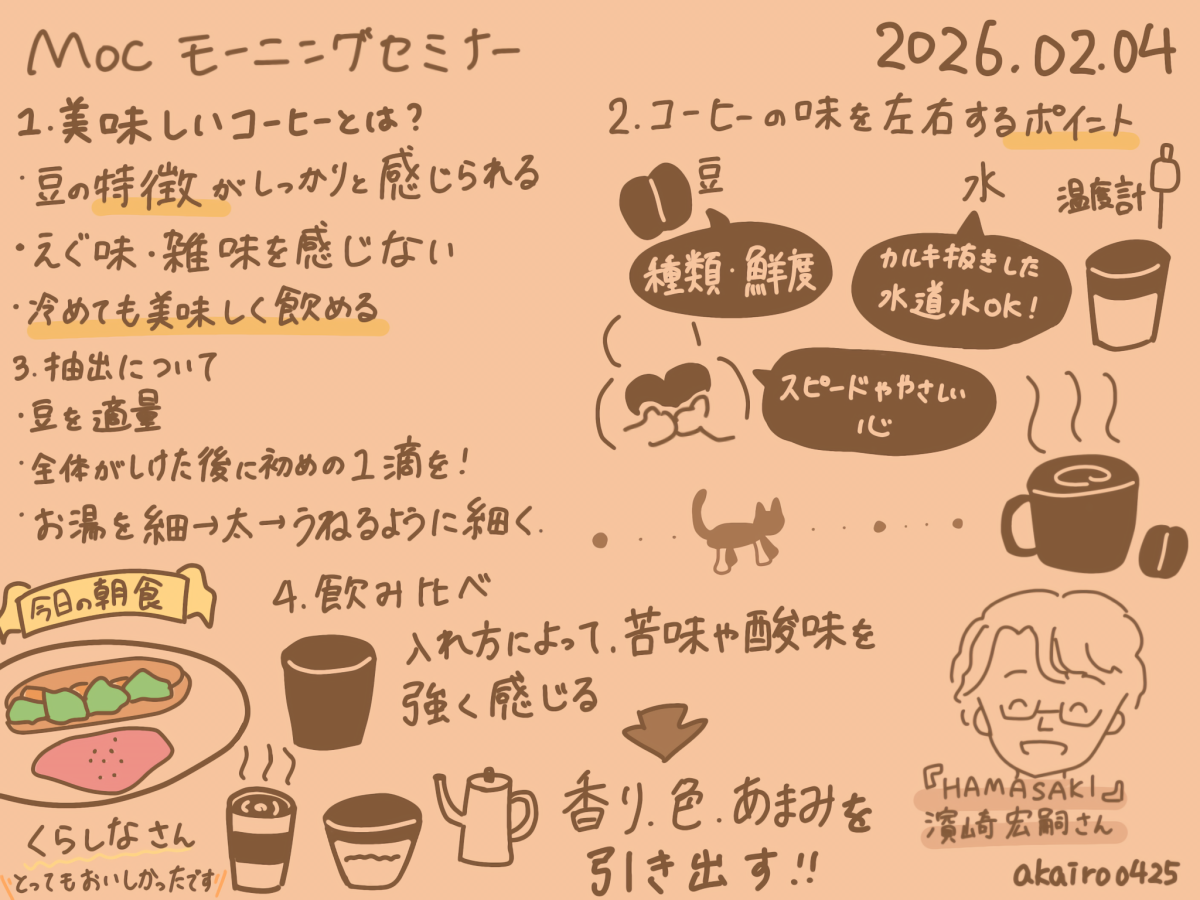 Moc モーニングセミナー
2026.02.04
1.美味しいコーヒーとは?
・豆の特徴がしっかりと感じられる
・えぐ味・雑味を感じない
・冷めても美味しく飲める
2.コーヒーの味を左右するポイント
豆
種類・鮮度
水
カルキ抜きした
水道水OK!
温度計
スピードややさしい
心
3.抽出について
・豆を適量
・全体がしけた後に初めの1滴を!
・お湯を細→太→うねるように細く.
今日の朝食
くらしなさん
とってもおいしかったです
4.飲み比べ
入れ方によって.苦味や酸味を
強く感じる
香り.色.あまみを
引き出す!!
『HAMASAKI』
濵崎宏嗣さん
akairo0425